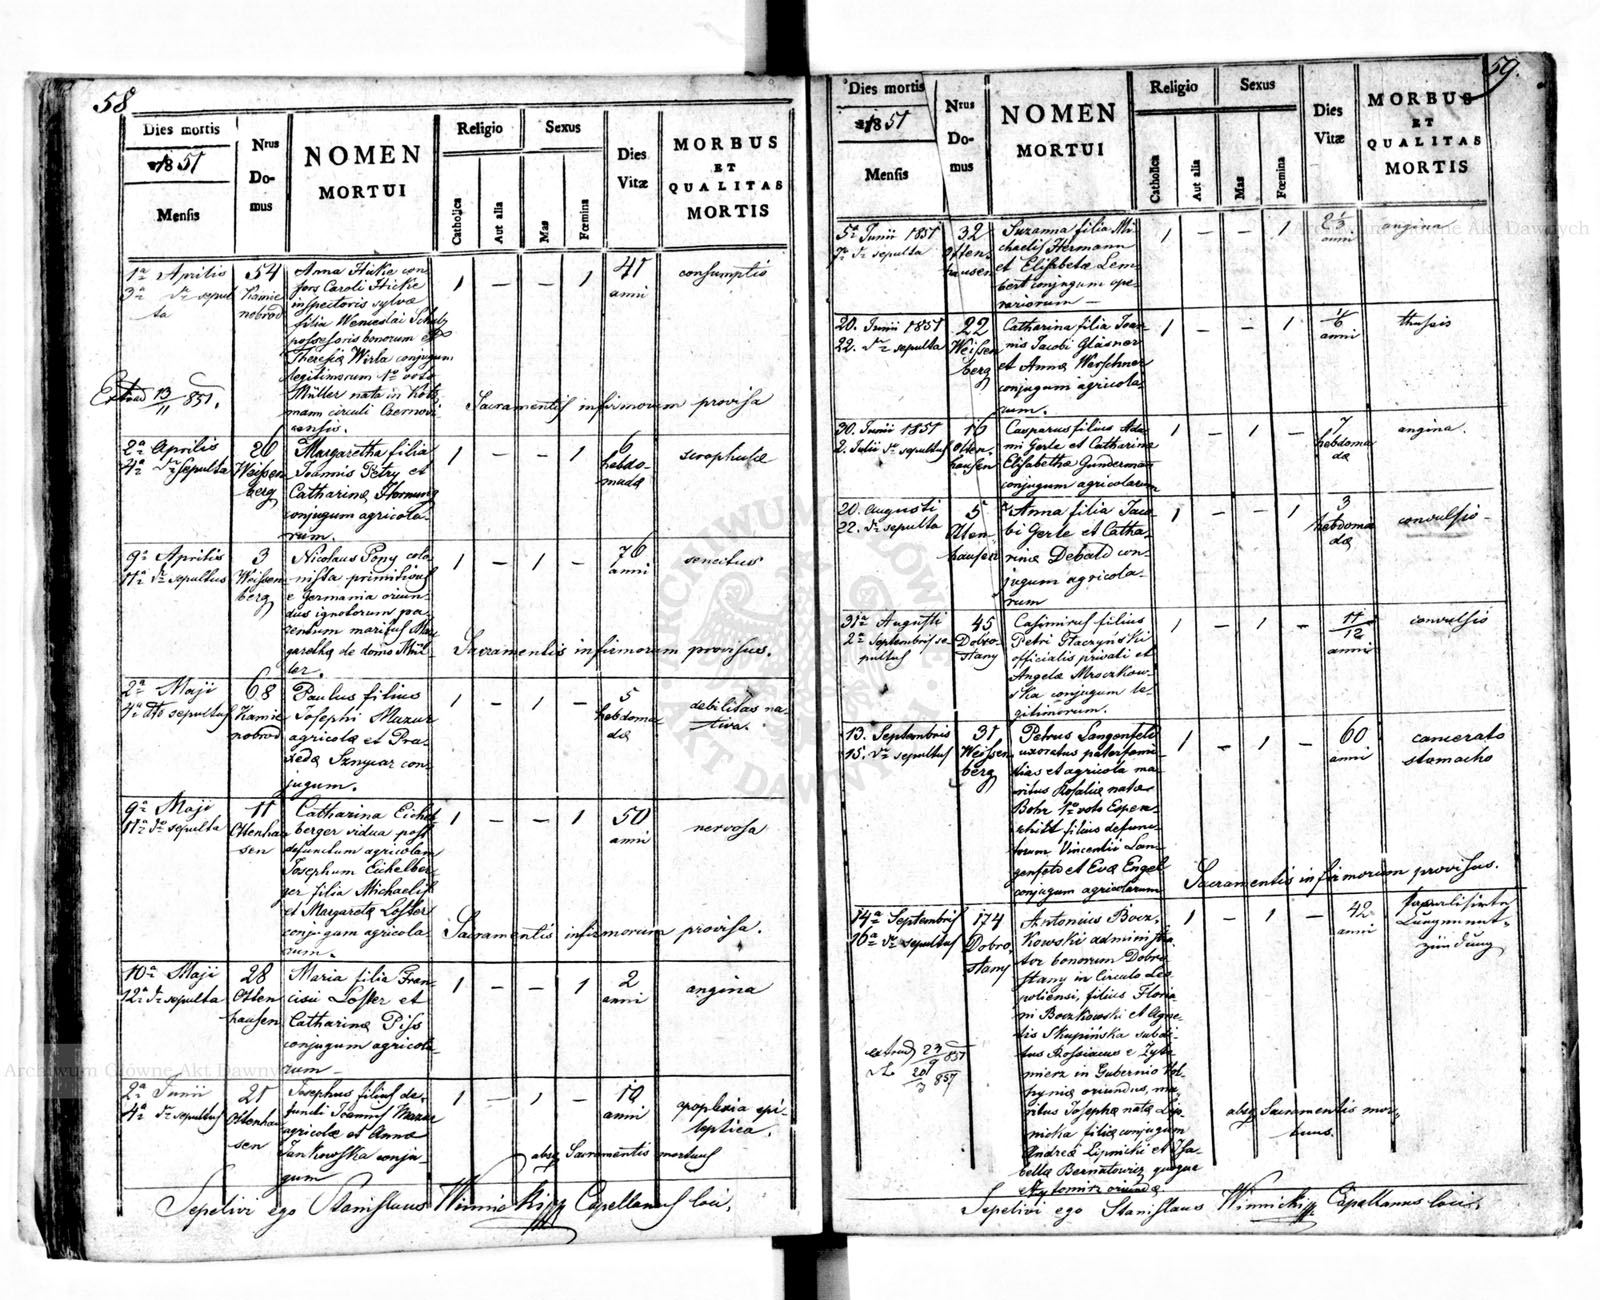 58.
Dies mortis
1851
Mensis
Nrus
Do-
mus
NOMEN
MORTUI
Religio
Catholica
Aut alia
Sexus
Mas
Fœmina
Dies
Vitæ
MORBUS
ET
QUALITAS
MORTIS
1ª Aprilis
3ª dto sepul
ta
54
Kamie
nobrod
Anna Hicke con
sors Caroli Hicke
inspectoris sylvæ
filia Wenceslai Schulz
possessoris bonorum et
Theresiæ Wirla conjugum
legitimorum 1º voto
Müller nata in Kotz
mann circuli Czernovi
censis.
1 – – 1
41
anni
consumptio
Extrad 13/11 851.
Sacramentis infirmorum provisa
2ª Aprilis
4ª dto sepulta
26
Weissen
berg
Margaretha filia
Joannis Petry et
Catharinæ Hornung
conjugum agricola-
rum.
1 – – 1
6
hebdo-
madæ
scrophulæ
9ª Aprilis
11ª dto sepultus
3
Weissen
berg
Nicolaus Pony colo
nista primitivus
e Germania oriun
dus ignotorum pa
rentum maritus Mar
garethæ de domo Mül-
ler.
1 – 1 –
76
anni
senectus
Sacramentis infirmorum provisus.
2ª Maji
4ª dto sepultus
68
Kamie
nobrod
Paulus filius
Josephi Mazur
agricolæ et Pra-
xedæ Sznycar con
jugum.
1 – 1 –
5
hebdoma
dæ
debilitas na-
tiva.
9ª Maji
11ª dto sepulta
11
Ottenhau
sen
Catharina Eichel
berger vidua post
defunctum agricolam
Josephum Eichelber
ger filia Michaelis
et Margaretæ Loster
conjugum agricola
rum.
1 – – 1
50
anni
nervosa
Sacramentis infirmorum provisa.
10ª Maji
12ª dto sepulta
28
Otten
hausen
Maria filia Fran-
cisci Loster et
Catharinæ Piss
conjugum agricola-
rum –
1 – – 1
2
anni
angina
2ª Junii
4ª dto sepultus
21
Ottenhau
sen
Josephus filius de-
functi Joannis Mazur
agricolæ et Annæ
Jankowska conju-
gum
1 – 1 –
10
anni
apoplexia epi-
leptica.
absq Sacramentis mortuus
Sepelivi ego Stanislaus Winnicki Capellanus loci.
59.
Dies mortis
1851
Mensis
Nrus
Do-
mus
NOMEN
MORTUI
Religio
Catholica
Aut alia
Sexus
Mas
Fœmina
Dies
Vitæ
MORBUS
ET
QUALITAS
MORTIS
5ª Junii 1851
7ª dto sepulta
32
Otten-
hausen
Suzanna filia Mi
chaelis Hermann
et Elisabetæ Lem
bert conjugum ope
rariorum –
1 – – 1
anni
angina
20. Junii 1851
22. dto sepulta
22
Weissen
berg
Catharina filia Joan
nis Jacobi Gläsner
et Annæ Warschner
conjugum agricola
rum.
1 – – 1
1/6
anni
thussis
30. Junii 1851
2. Julii dto sepultus
16
Otten-
hausen
Casparus filius Ada
mi Gerle et Catharinæ
Elisabethæ Gunderman
conjugum agricolarum
1 – 1 –
7
hebdoma
dæ
angina.
20. Augusti
22. dto sepulta
5
Otten-
hausen
Anna filia Jaco
bi Gerle et Catha-
rinæ Debald con-
jugum agricola-
rum
1 – – 1
3
hebdoma
dæ
convulsio –
31ª Augusti
2ª Septembris se-
pultus
45
Dobro-
stany
Casimirus filius
Petri Haczyński
officialis privati et
Angelæ Mroczkow-
ska conjugum le-
gitimorum.
1 – 1 –
11/12
anni
convulsio
13. Septembris
15. dto sepultus
31
Weissen
berg
Petrus Langenfeld
uxoratus paterfami-
lias et agricola ma-
ritus Rosaliæ natæ
Bohr 1º voto Espen-
schitt filius defunc-
torum Vincentii Lan
genfeld et Evæ Engel
conjugum agricolarum
1 – 1 –
60
anni
cancerato
stomacho
Sacramentis infirmorum provisus.
14ª Septembris
16ª dto sepultus
174
Dobro
stany
Antonius Bocz-
kowski administra
tor bonorum Dobro
stany in Circulo Leo
poliensi, filius Floria-
ni Boczkowski et Agne-
tis Skupińska subdi-
tus Rossiacus e Żyto
mierz in Gubernio Vol
hyniæ oriundus, ma-
ritus Josephæ natæ Lip-
nicka filiæ conjugum
Andreæ Lipnicki et Isa-
bellæ Bernatowicz quoque
e Zytomirz oriundæ
1 – 1 –
42
anni
Lungenent-
zündung
extrad 23/9 851
20/3 857
absq Sacramentis mor-
tuus.
Sepelivi ego Stanislaus Winnicki Capellanus loci.
Archiwum Główne Akt Dawnych
Archiwum Główne Akt Dawnych
ARCHIWUM GŁÓWNE AKT DAWNYCH